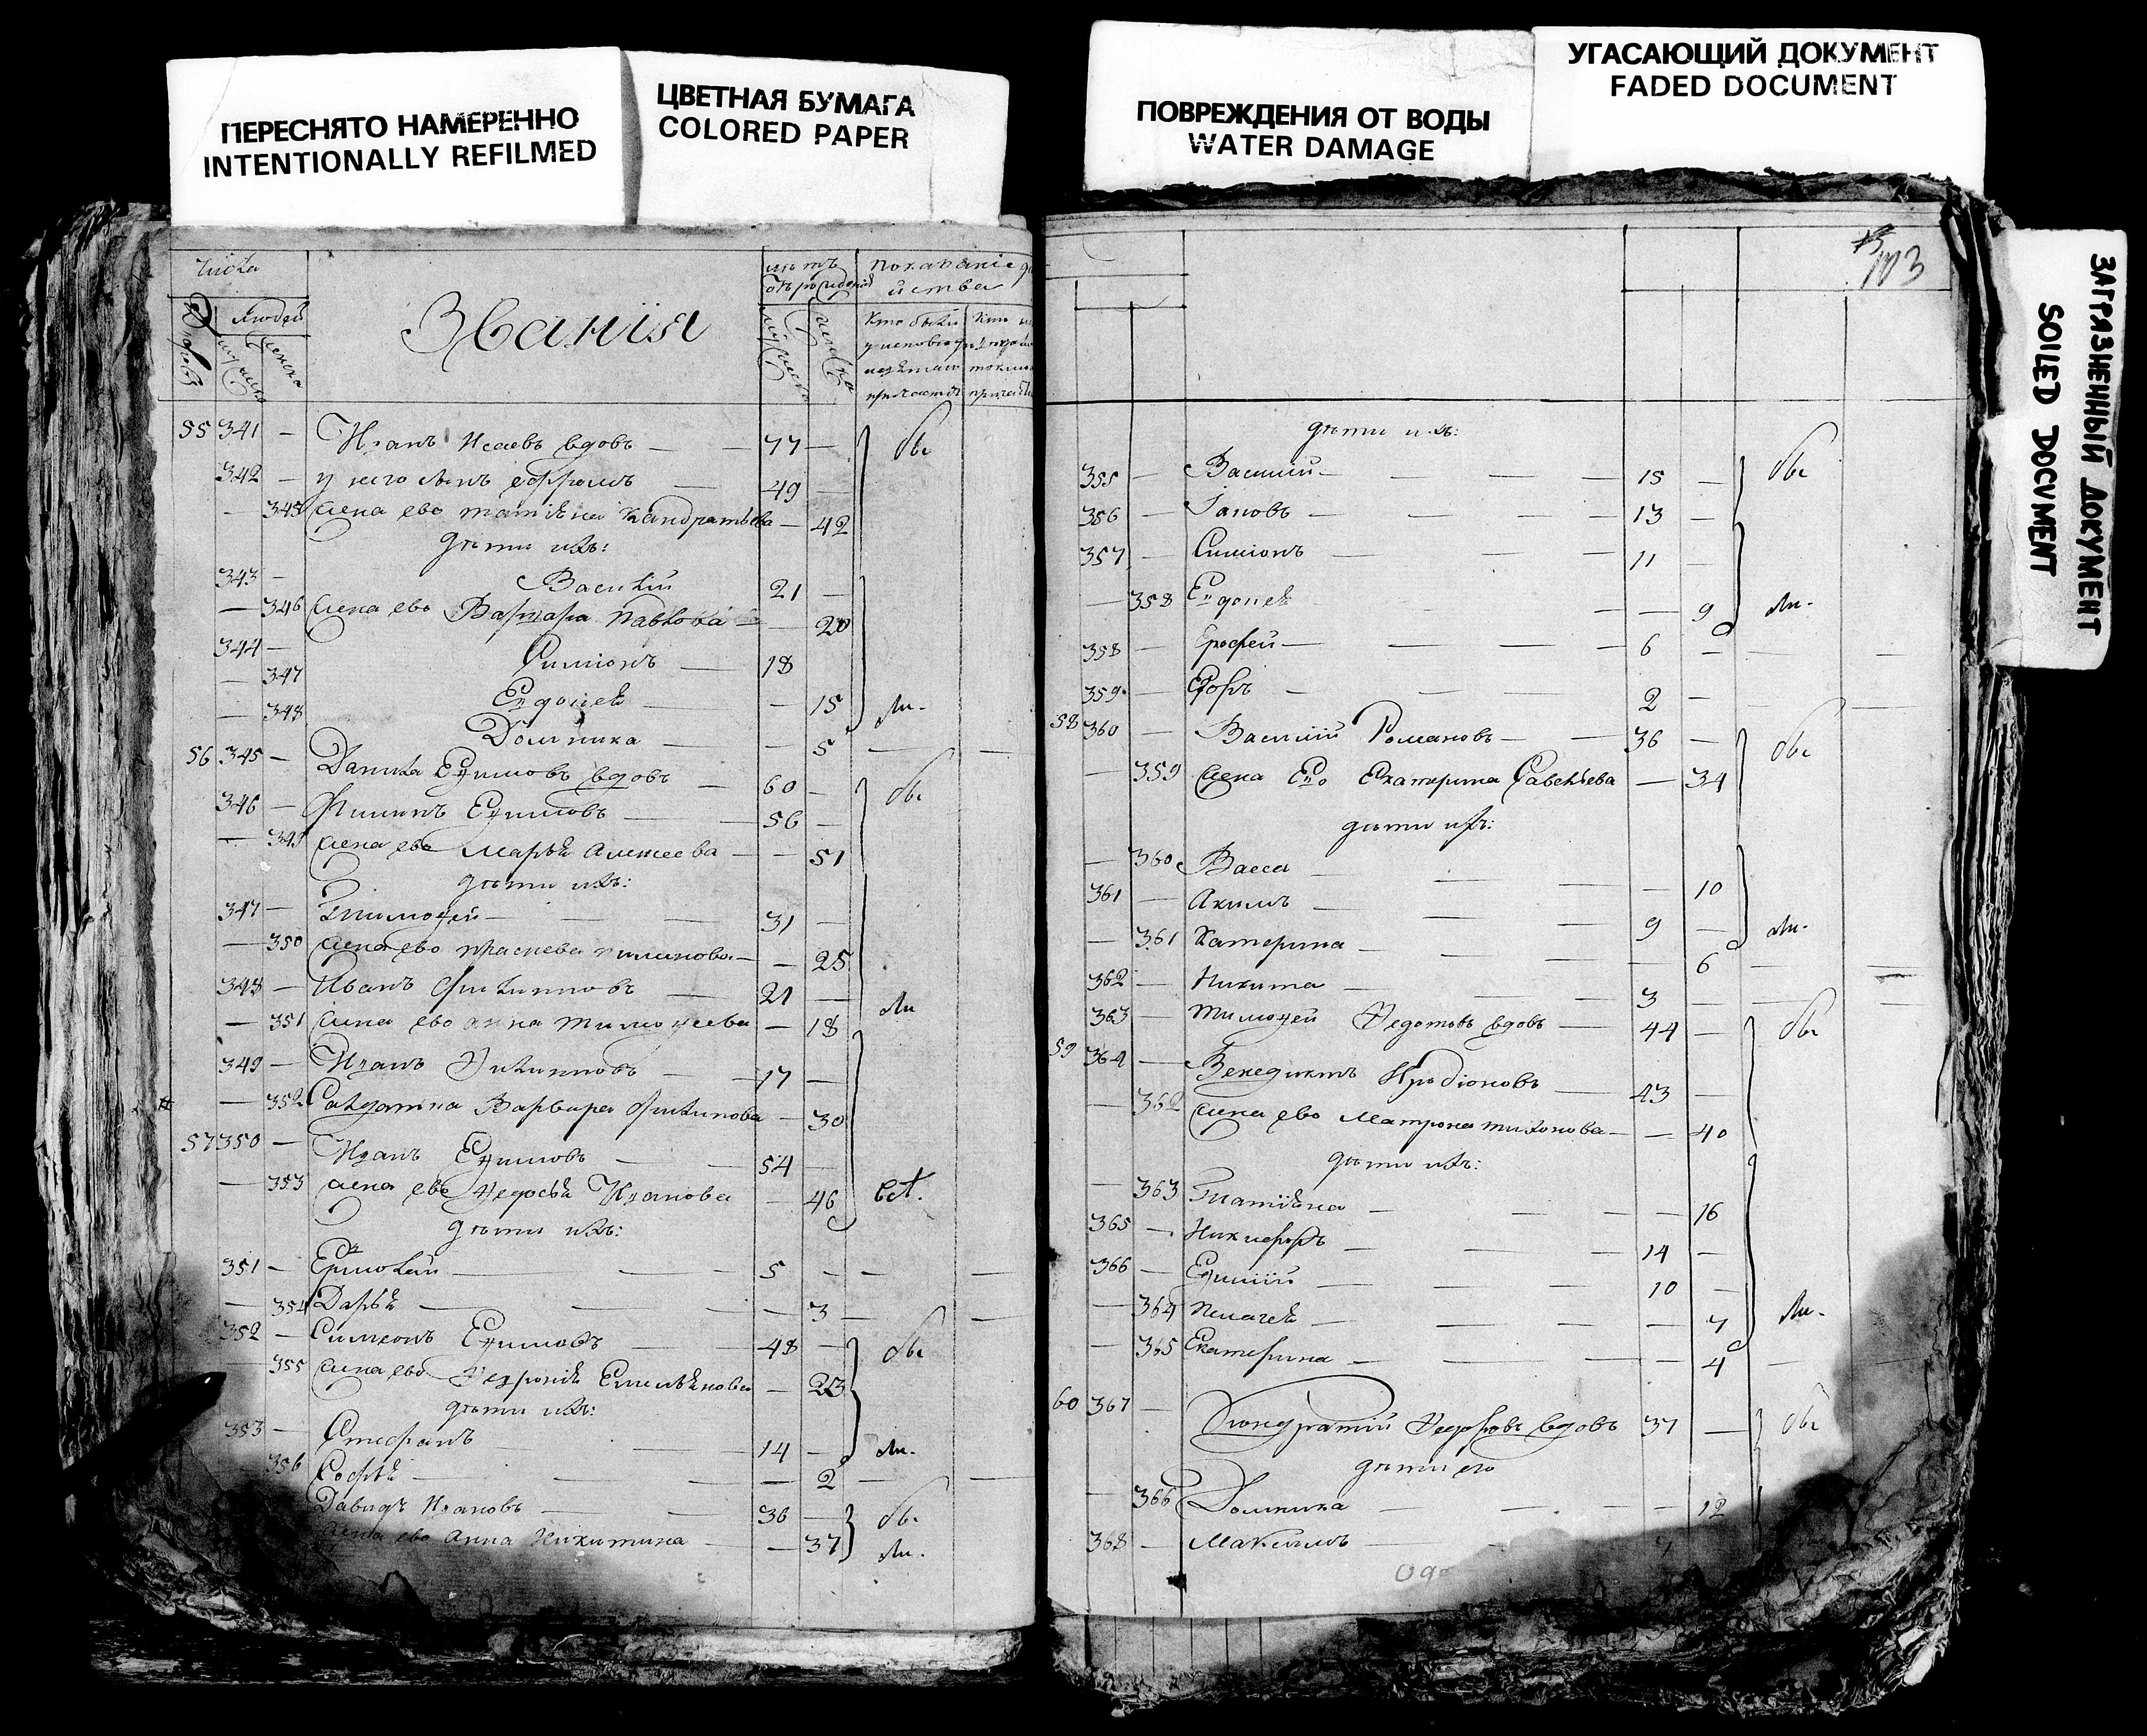 ПЕРЕСНЯТО НАМЕРЕННО
INTENTIONALLY REFILMED
ЦВЕТНАЯ БУМАГА
COLORED PAPER
ПОВРЕЖДЕНИЯ ОТ ВОДЫ
WATER DAMAGE
УГАСАЮЩИЙ ДОКУМЕНТ
FADED DOCUMENT
ЗАГРЯЗНЕННЫЙ ДОКУМЕНТ
SOILED DOCUMENT
Числа
Людей
Званія
Показаніе
55 341 — Иванъ Исаевъ вдовъ — 77 — обс
342 — у него сынъ Ефремъ — 49 —
— 345 жена ево татіѣна Кандратьева — 42
дѣти ихъ:
343 — Василій 21 —
— 346 жена ево Варвара Павлова — 20
344 — Симіонъ — 18
— 347 Евдокеѣ — 15 ли.
— 348 Домника — 5
56 345 — Данила Ефимовъ вдовъ — 60 — обс
346 — Филипъ Ефимовъ — 56 —
— 349 жена ево Марьѣ Алексеева — 51
дѣти ихъ:
347 — Тимофей — 31 —
— 350 жена ево праскева — 25
348 — Иванъ Филипповъ — 21 — ли
— 351 жена ево анна тимофеева — 18
349 — Иванъ Филипповъ — 17 —
— 352 Салдатка Варвара Филипова — 30
57 350 — Иванъ Ефимовъ — 54 —
— 353 жена ево Федосьѣ Иванова — 46 вст.
дѣти ихъ:
351 — Ермолай — 5 —
— 354 Дарьѣ — 3
352 — Симеонъ Ефимовъ — 48 — обс
355 жена ево Феврониѣ Емельѣнова — 23
дѣти ихъ:
353 — Стефанъ — 14 — ли.
356 Софьѣ — 2
Давидъ Ивановъ — 36 — обс
жена ево Анна Никитина — 37 ли.
103
дѣти ихъ:
355 — Василій — 15 — обс
356 — Іаковъ — 13 —
357 — Симіонъ — 11
— 358 Евдокеѣ — 9 ли.
358 — Ерофей — 6 —
359 — Егоръ — 2 —
58 360 — Василій Романовъ — 36 — обс
— 359 жена Ево Екатерина Савельева — 34
дѣти ихъ:
— 360 Васса — 10
361 — Акимъ — 9 — ли.
— 361 Катерина — 6
362 — Никита — 3 —
363 — тимофей Федотовъ вдовъ — 44 — обс
59 364 — Венедиктъ Иродіоновъ — 43 —
— 362 жена ево Матрона тихонова — 40
дѣти ихъ:
— 363 Татіѣна — 16
365 — Никифоръ — 14 —
366 — Ефимій — 10
— 364 Пелагеѣ — 7 ли.
— 365 Екатерина — 4
60 367 — Кондратій Федоровъ вдовъ 37 — обс
дѣти его
— 366 Домника — 12
368 — Максимъ — 7